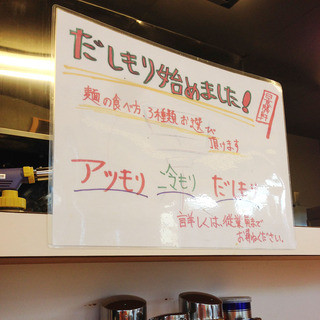 だしもり始めました!
麺の食べ方、3種類お選び
頂けます
アツモリ 冷もり だしもり
詳しくは、従業員まで
お尋ねください。